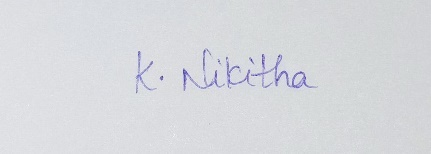 K. Nikitha